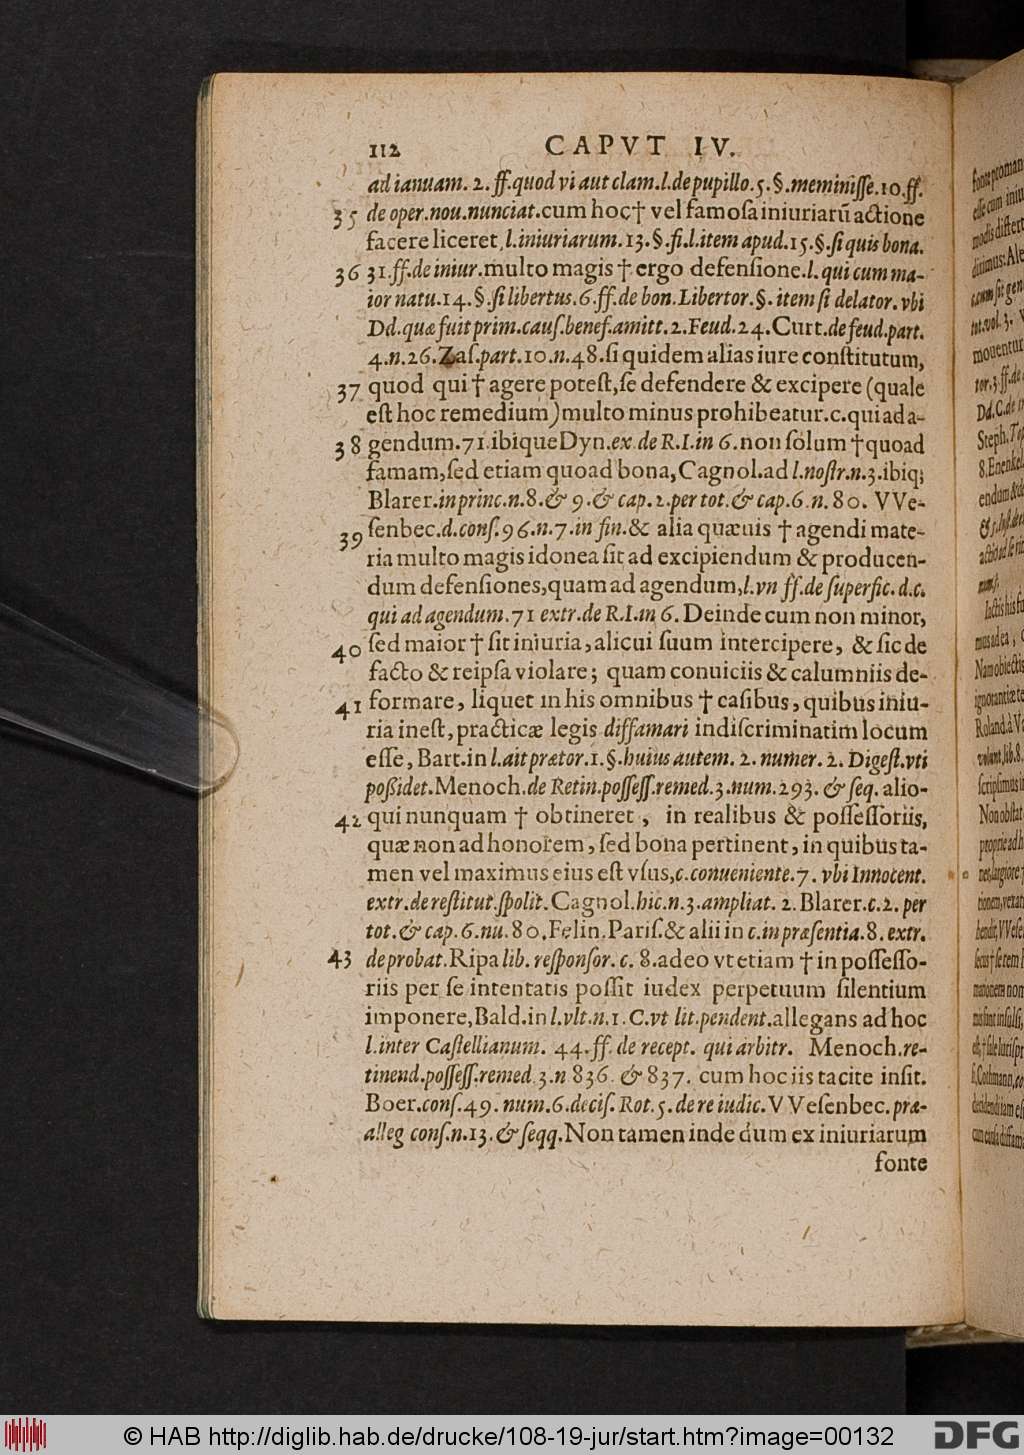 112 CAPVT IV.
ad ianuam. 2. ff. quod vi aut clam. l. de pupillo. 5. §. meminiſſe. 10. ff.
35 de oper. nou. nunciat. cum hoc† vel famoſa iniuriarũ actione
facere liceret, l. iniuriarum. 13. §. ſi. l. item apud. 15. §. ſi quis bona.
36 31. ff. de iniur. multo magis † ergo defenſione. l. qui cum ma-
ior natu. 14. §. ſi libertus. 6. ff. de bon. Libertor. §. item ſi delator. vbi
Dd. quæ fuit prim. cauſ. benef. amitt. 2. Feud. 24. Curt. de feud. part.
4. n. 26. Zaſ. part. 10. n. 48. ſi quidem alias iure conſtitutum,
37 quod qui † agere poteſt, ſe defendere & excipere (quale
eſt hoc remedium) multo minus prohibeatur. c. qui ad a-
38 gendum. 71. ibique Dyn. ex. de R. I. in 6. non ſolum † quoad
famam, ſed etiam quoad bona, Cagnol. ad l. noſtr. n. 3. ibiq;
Blarer. in princ. n. 8. & 9. & cap. 2. per tot. & cap. 6. n. 80. VVe-
39 ſenbec. d. conſ. 96. n. 7. in fin. & alia quæuis † agendi mate-
ria multo magis idonea ſit ad excipiendum & producen-
dum defenſiones, quam ad agendum, l. vn ff. de ſuperfic. d. c.
qui ad agendum. 71 extr. de R. I. in 6. Deinde cum non minor,
40 ſed maior † ſit iniuria, alicui ſuum intercipere, & ſic de
facto & reipſa violare; quam conuiciis & calumniis de-
41 formare, liquet in his omnibus † caſibus, quibus iniu-
ria ineſt, practicæ legis diffamari indiſcriminatim locum
eſſe, Bart. in l. ait prætor. 1. §. huius autem. 2. numer. 2. Digeſt. vti
poßidet. Menoch. de Retin. poſſeſſ. remed. 3. num. 293. & ſeq. alio-
42 qui nunquam † obtineret, in realibus & poſſeſſoriis,
quæ non ad honorem, ſed bona pertinent, in quibus ta-
men vel maximus eius eſt vſus, c. conueniente. 7. vbi Innocent.
extr. de reſtitut. ſpolit. Cagnol. hic. n. 3. ampliat. 2. Blarer. c. 2. per
tot. & cap. 6. nu. 80. Felin. Pariſ. & alii in c. in præſentia. 8. extr.
43 de probat. Ripa lib. reſponſor. c. 8. adeo vt etiam † in poſſeſſo-
riis per ſe intentatis poſſit iudex perpetuum ſilentium
imponere, Bald. in l. vlt. n. 1. C. vt lit. pendent. allegans ad hoc
l. inter Caſtellianum. 44. ff. de recept. qui arbitr. Menoch. re-
tinend. poſſeſſ. remed. 3. n 836. & 837. cum hoc iis tacite inſit.
Boer. conſ. 49. num. 6. deciſ. Rot. 5. de re iudic. VVeſenbec. præ-
alleg conſ. n. 13. & ſeqq. Non tamen inde dum ex iniuriarum
fonte
© HAB http://diglib.hab.de/drucke/108-19-jur/start.htm?image=00132
DFG